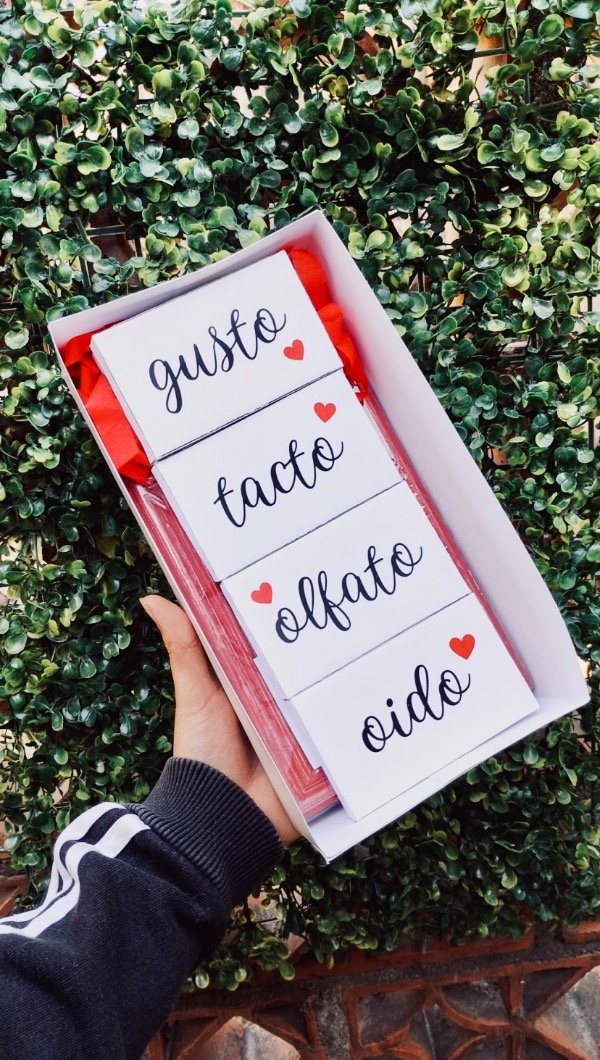 gusto
tacto
olfato
oido